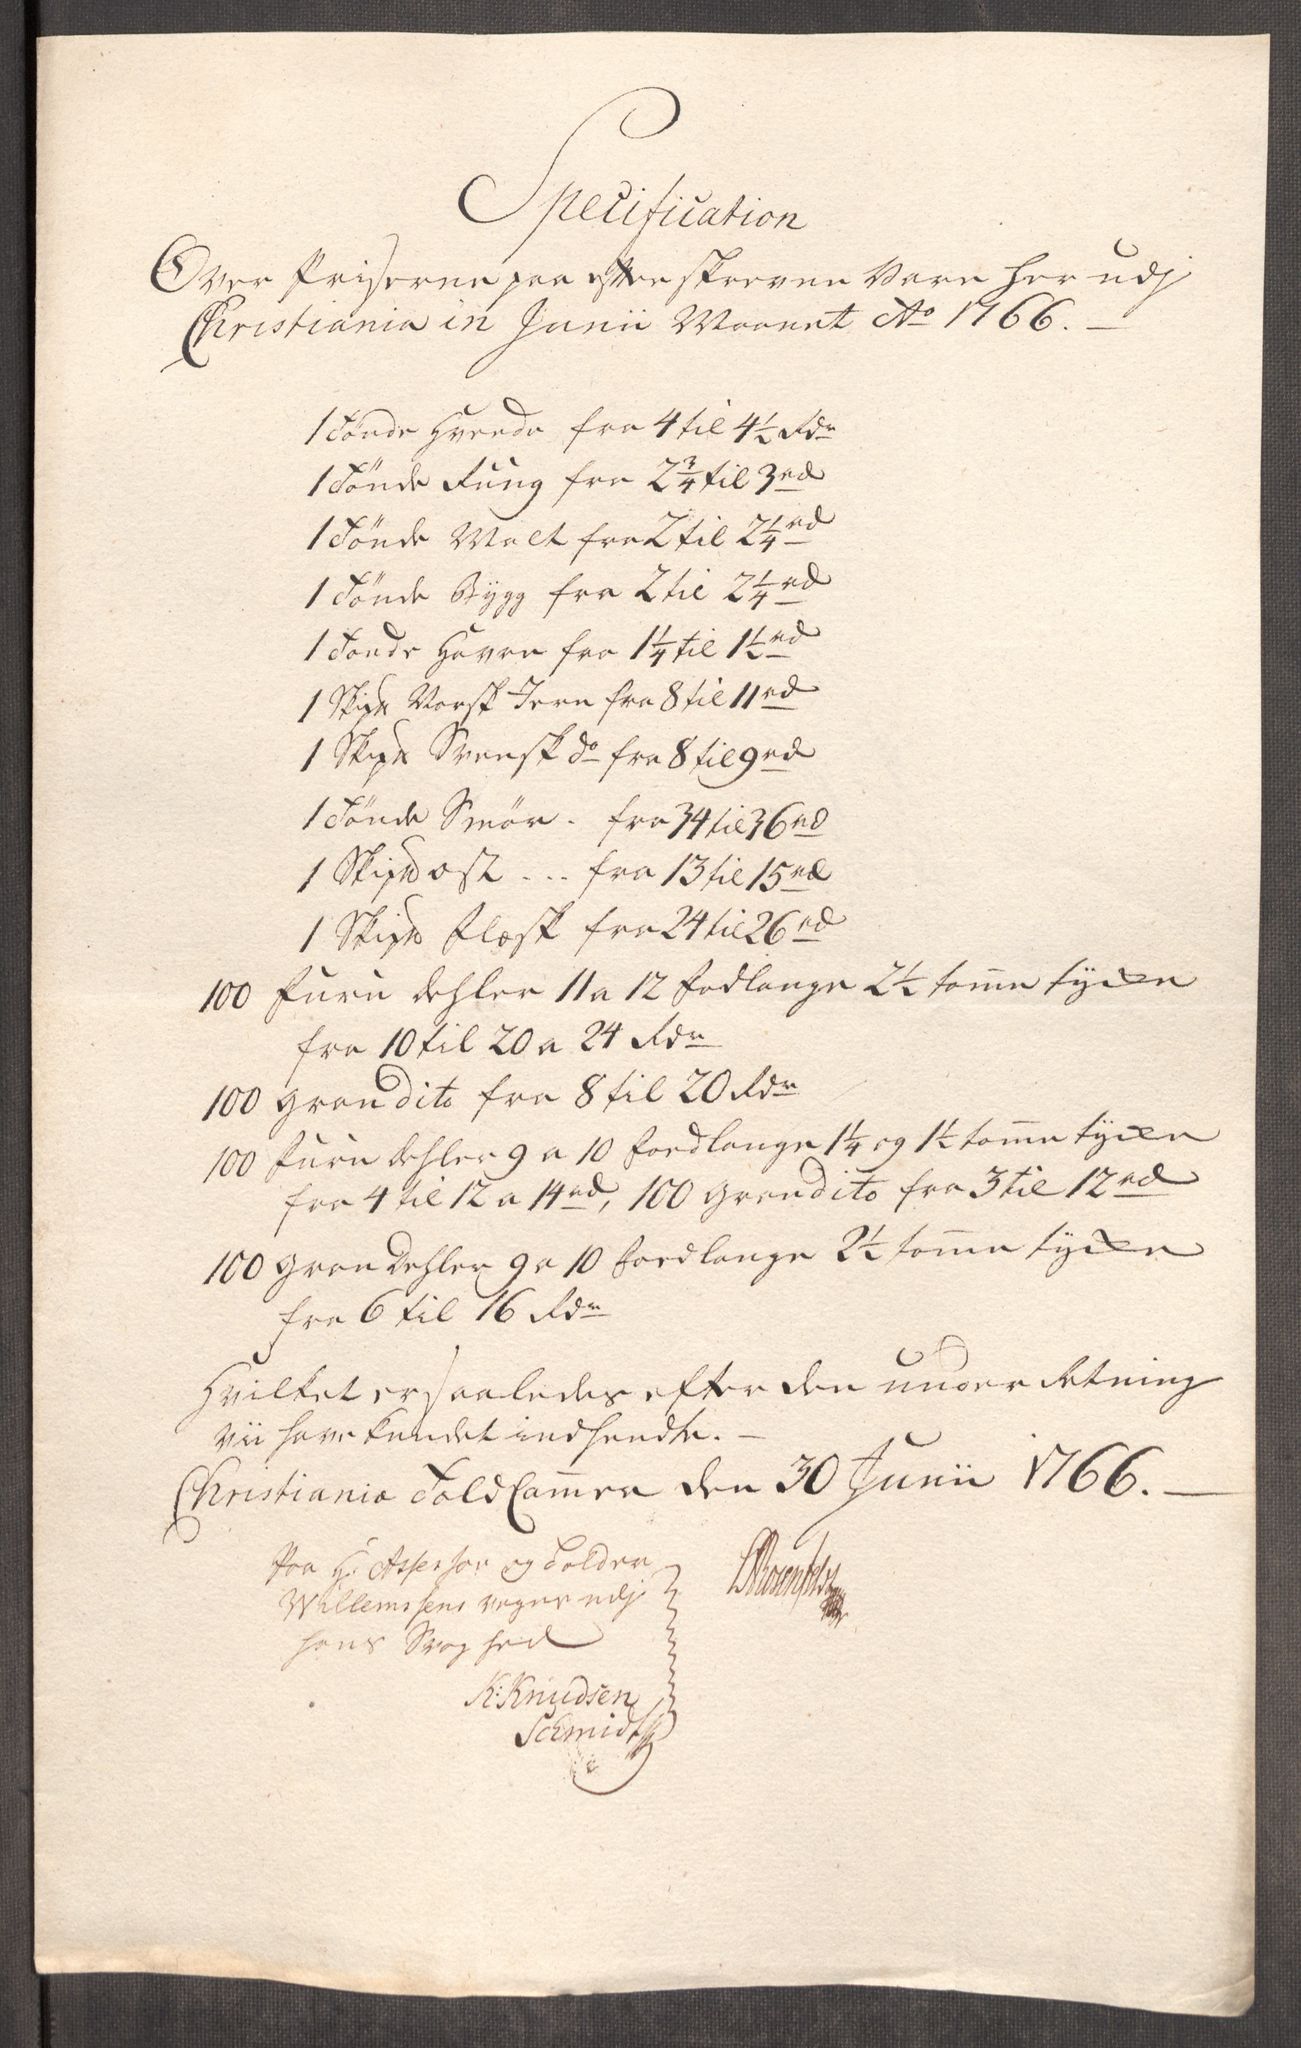 Specification
Over Priserne paa efterskrevne Vare her udj
Christiania in Junii Maanet Ao 1766. —
1 Tönde Hvede fra 4 til 4½ Rdr
1 Tönde Rúug fra 2¾ til 3 rd
1 Tönde Malt fra 2 til 2¼ rd
1 Tönde Bygg fra 2 til 2¼ rd
1 Tönde Havre fra 1¼ til 1½ rd
1 Skip℔ Norsk Jern fra 8 til 11 rd
1 Skip℔ Svensk do fra 8 til 9 rd
1 Tönde Smör . fra 34 til 36 rd
1 Skip℔ ost ... fra 13 til 15 rd
1 Skip℔ Flæsk fra 24 til 26 rd
100 Furu dehler 11 a 12 Fodlange 2½ tomme tycke
fra 10 til 20 a 24 Rdr
100 gran dito fra 8 til 20 Rdr
100 Furu dehler 9 a 10 Foedlange 1¼ og 1½ tomme tycke
fra 4 til 12 a 14 rd, 100 gran dito fra 3 til 12 rd
100 gran Dehler 9 a 10 Foedlange 2½ tomme tycke
fra 6 til 16 Rdr
Hvilket er saaledes efter den underretning
vii have kundet indhendte. —
Christiania Told Cammer den 30 Junii 1766. —
Paa Hr Assessor og Tolder
Willemsens vegne udj
hans Svaghed
K: Knudsen
Schmidt